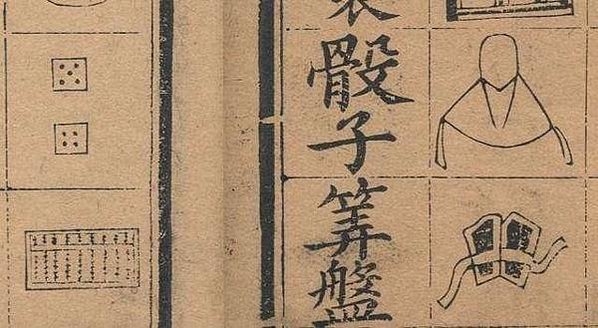 骰子筭盤